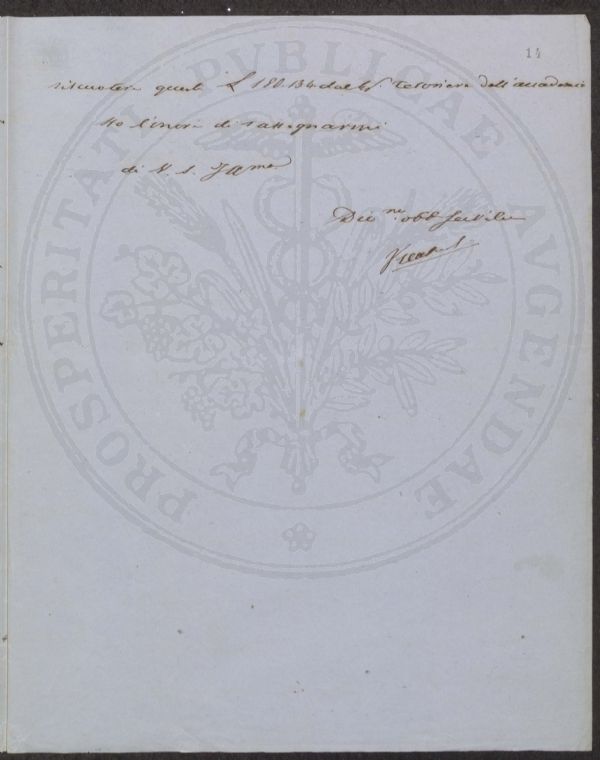 14
riscuotere queste £ 180.134 dal Sr. Tesoriere dell'accademia
Ho l'onore di rassegnarmi
di V. S. Illma
Devmo obb Servitore
PROSPERITATI PUBLICAE AVGENDAE